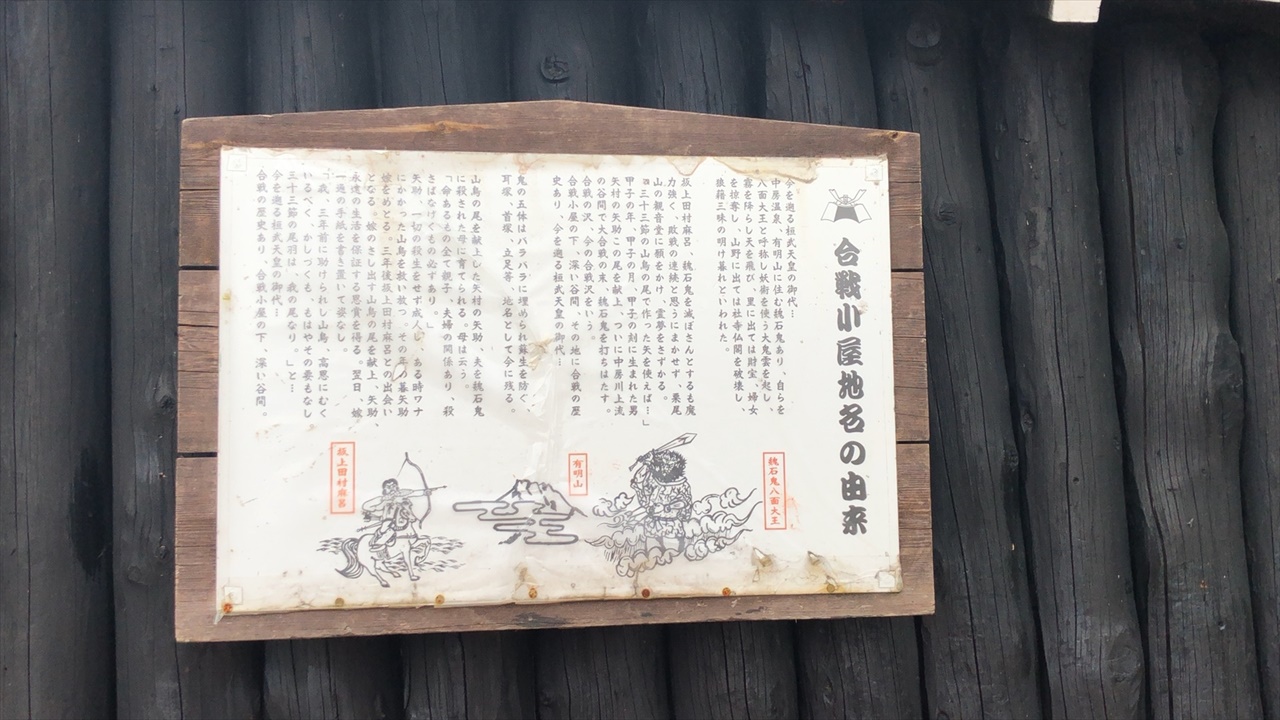 合戦小屋地名の由来
今を遡る桓武天皇の御代…
中房温泉、有明山に住む魏石鬼あり、自らを
八面大王と呼称し妖術を使う大鬼雲を起し、
霧を降らし天を飛び、里に出ては財宝、婦女
を掠奪し、山野に出ては社寺仏閣を破壊し、
狼藉三昧の明け暮れといわれた。
坂上田村麻呂、魏石鬼を滅ぼさんとするも魔
力強く、敗戦の連続と思うにまかせず、栗尾
山の観音堂に願をかけ、霊夢をさずかる。
「三十三節の山鳥の尾で作った矢を使えば…」
甲子の年、甲子の月、甲子の刻に生まれた男
矢村の矢助この尾を献上、ついに中房川上流
の谷間で大合戦の末、魏石鬼を打ちはたす。
合戦の沢、今の合戦沢をいう。
合戦小屋の下、深い谷間、その地に合戦の歴
史あり、今を遡る桓武天皇の御代…
鬼の五体はバラバラに埋められ蘇生を防ぐ、
耳塚、首塚、立足等、地名として今に残る。
山鳥の尾を献上した矢村の矢助、夫を魏石鬼
に殺された母に育てられる。母は云う。
「命あるもの全て親子、夫婦の関係あり、殺
さばなげくもの必ずあり。」
矢助、一切の殺生をせず成人し、ある時ワナ
にかかった山鳥を救い放つ。その年の暮矢助
嫁をめとる。三年後坂上田村麻呂との出会い
となる。嫁のさし出す山鳥の尾を献上、矢助、
永遠の生活を保証する恩賞を得る。翌日、嫁
一通の手紙を書き置いて姿なし。
「我、三年前に助けられし山鳥、高恩にむく
いるべく、かしづくも、もはやその要もなし
三十三節の尾羽は、我の尾なり。」と…
今を遡る桓武天皇の御代…
合戦の歴史あり、合戦小屋の下、深い谷間。
魏石鬼八面大王
有明山
坂上田村麻呂